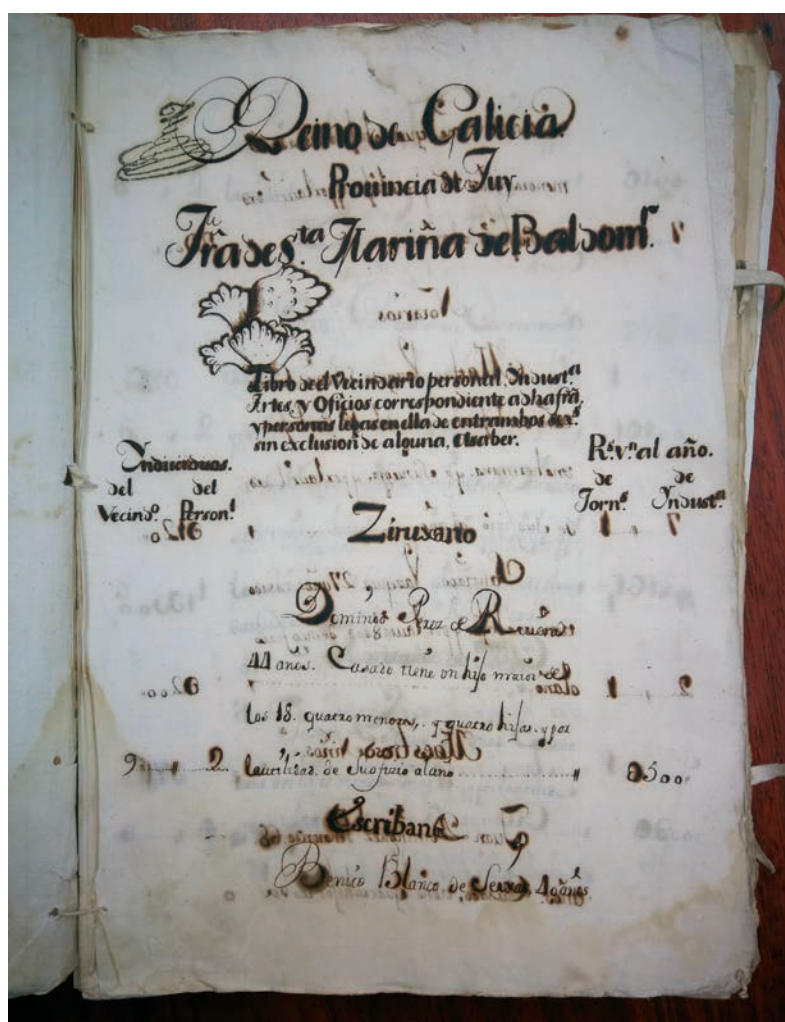 Reino de Galicia.
Provincia de Tuy.
Frã de S.ta Mariña de Baldom.r
Libro de el Vecindario personal, Yndust.a
Artes, y Oficios correspondiente a dha frã,
y personas legas en ella de entrambos sex.s
sin exclusion de alguna, Asaber.
Yndividuos.
del del
Vecind.o Person.l
R.s v.n al año.
de de
Jorn.s Yndust.a
Ziruxano
Domingo Perez de
44 años. Casado tiene un hijo maior de
los 18. quatro menores, y quatro hijas. y por
9 " 2 la utilidad de su oficio al año " 0500
Escribano
Benito Blanco de Seixas, 40 años.